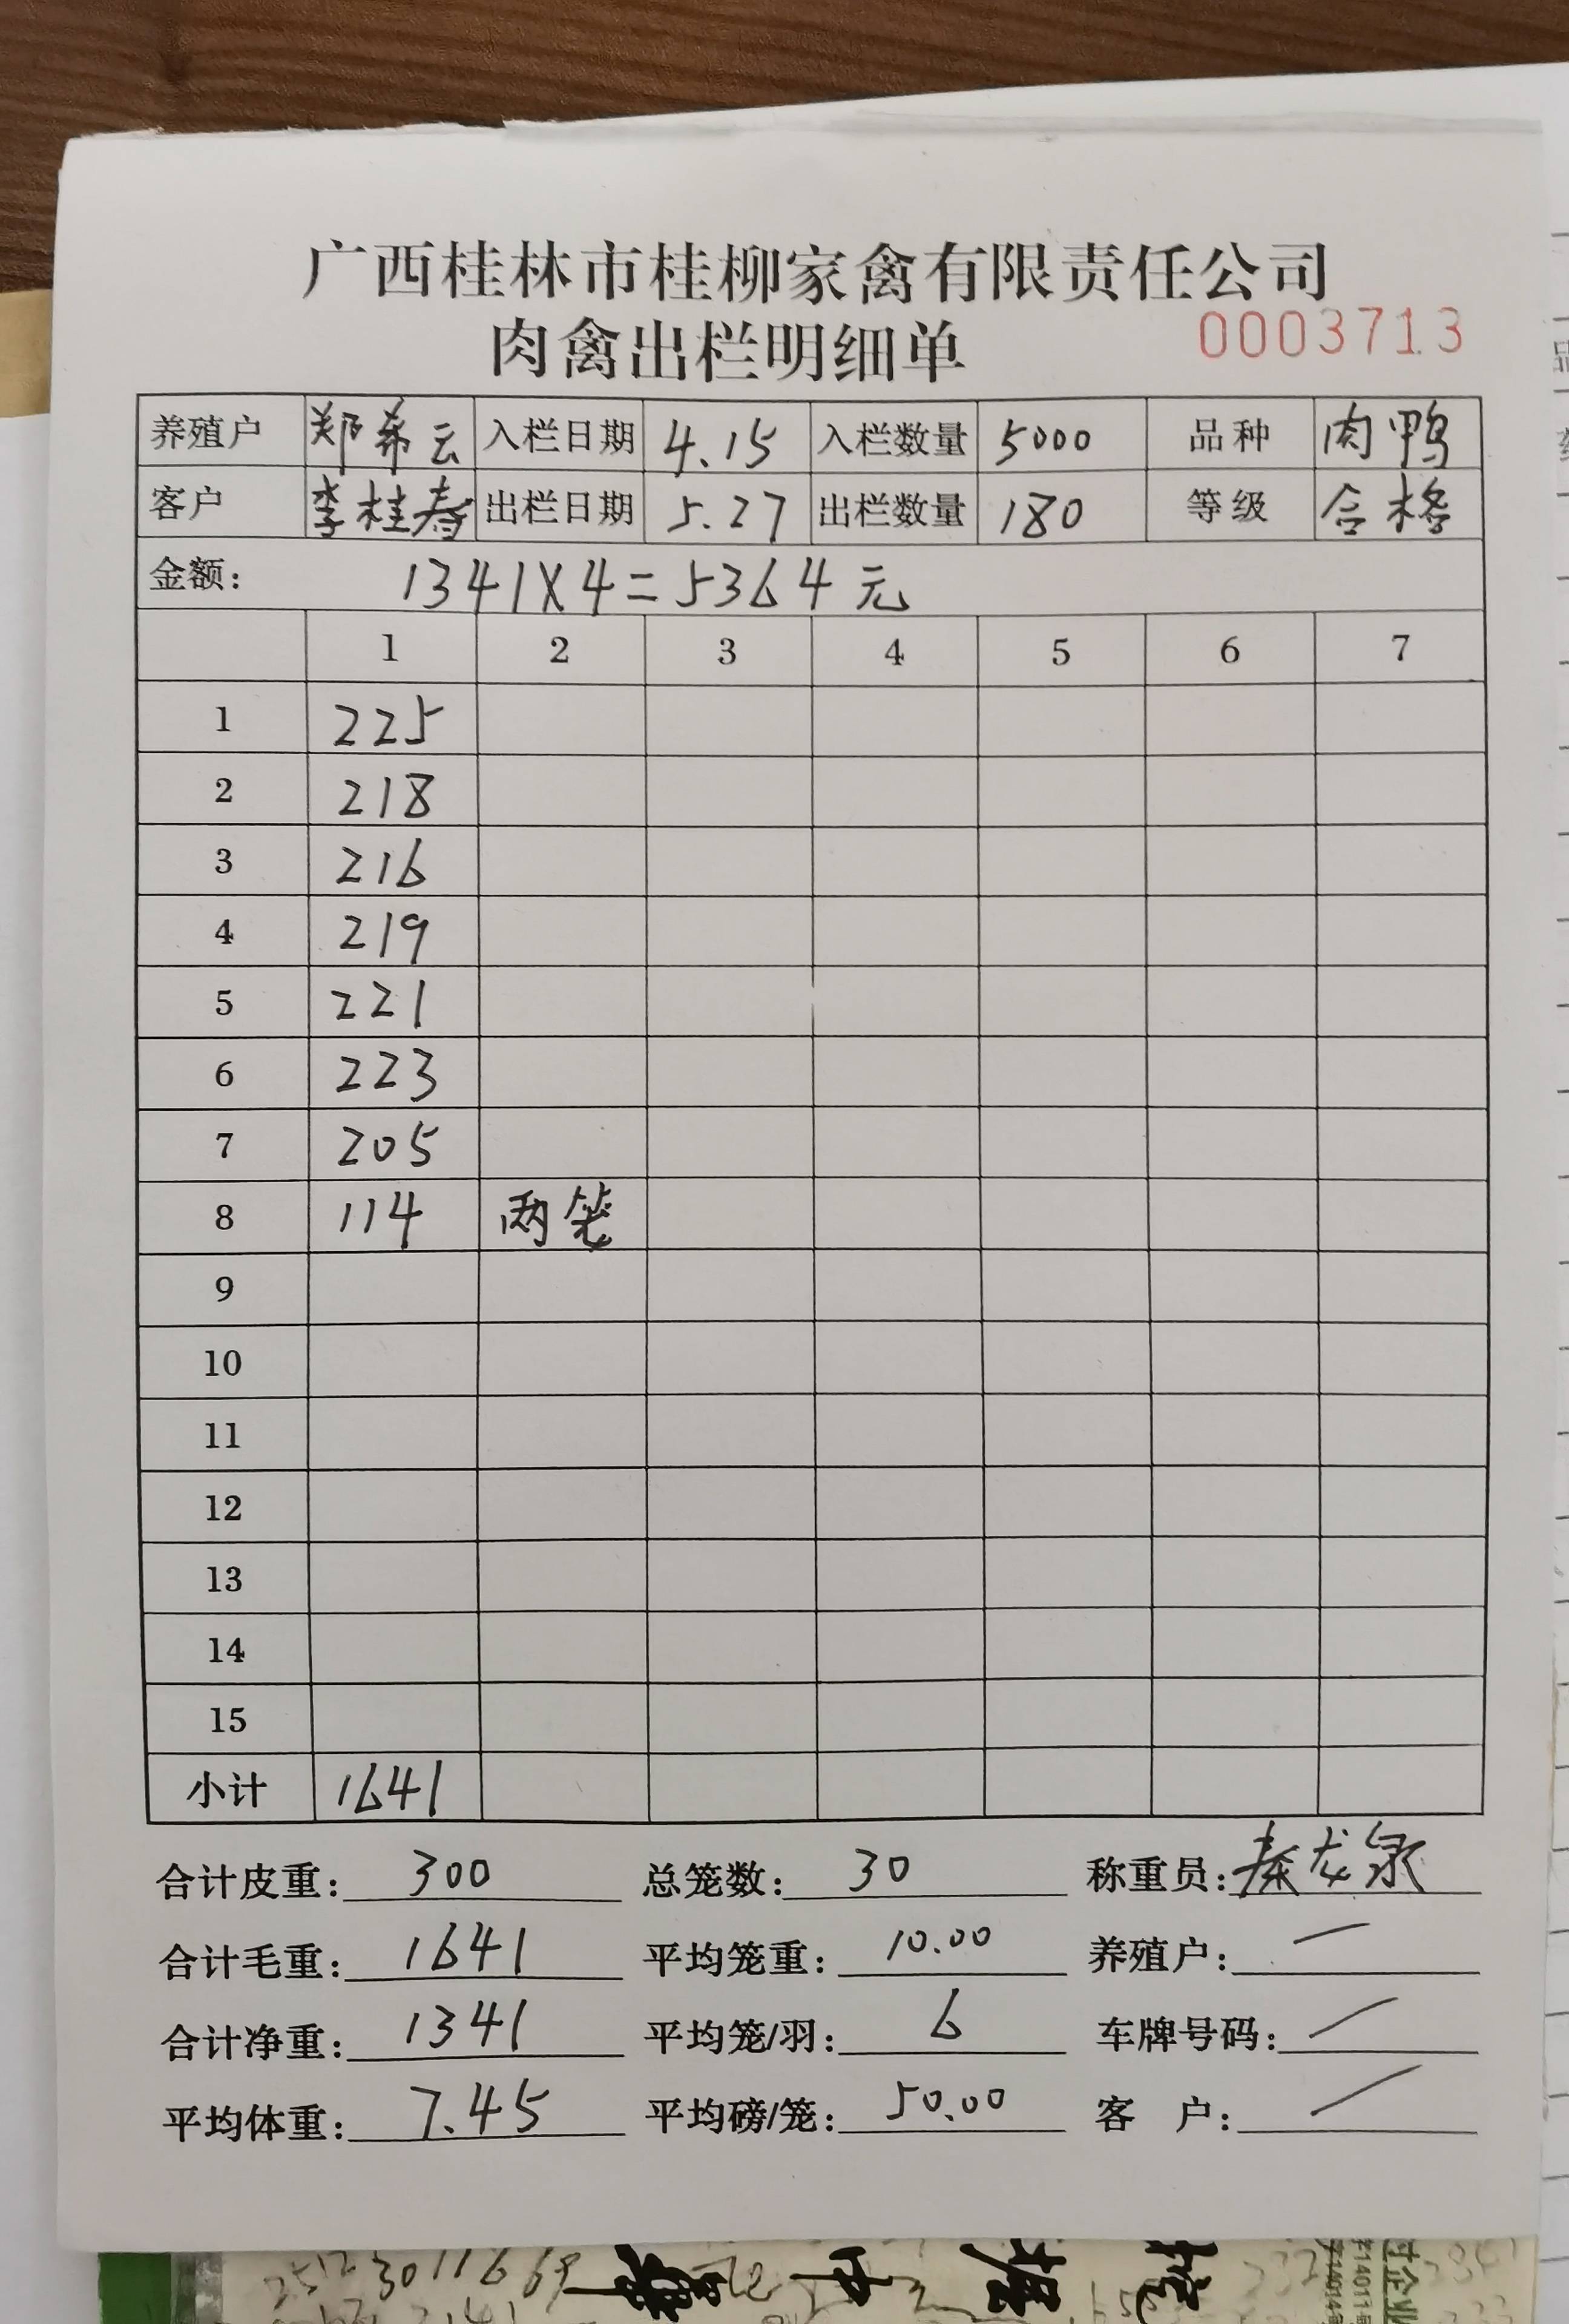 广西桂林市桂柳家禽有限责任公司
肉禽出栏明细单 0003713
养殖户 郑希云 入栏日期 4.15 入栏数量 5000 品种 肉鸭
客户 李桂寿 出栏日期 5.27 出栏数量 180 等级 合格
金额: 1341X4=5364元
1 2 3 4 5 6 7
1 225
2 218
3 216
4 219
5 221
6 223
7 205
8 114 两笼
9
10
11
12
13
14
15
小计 1641
合计皮重: 300 总笼数: 30 称重员: 秦龙泉
合计毛重: 1641 平均笼重: 10.00 养殖户:
合计净重: 1341 平均笼/羽: 6 车牌号码:
平均体重: 7.45 平均磅/笼: 50.00 客 户: